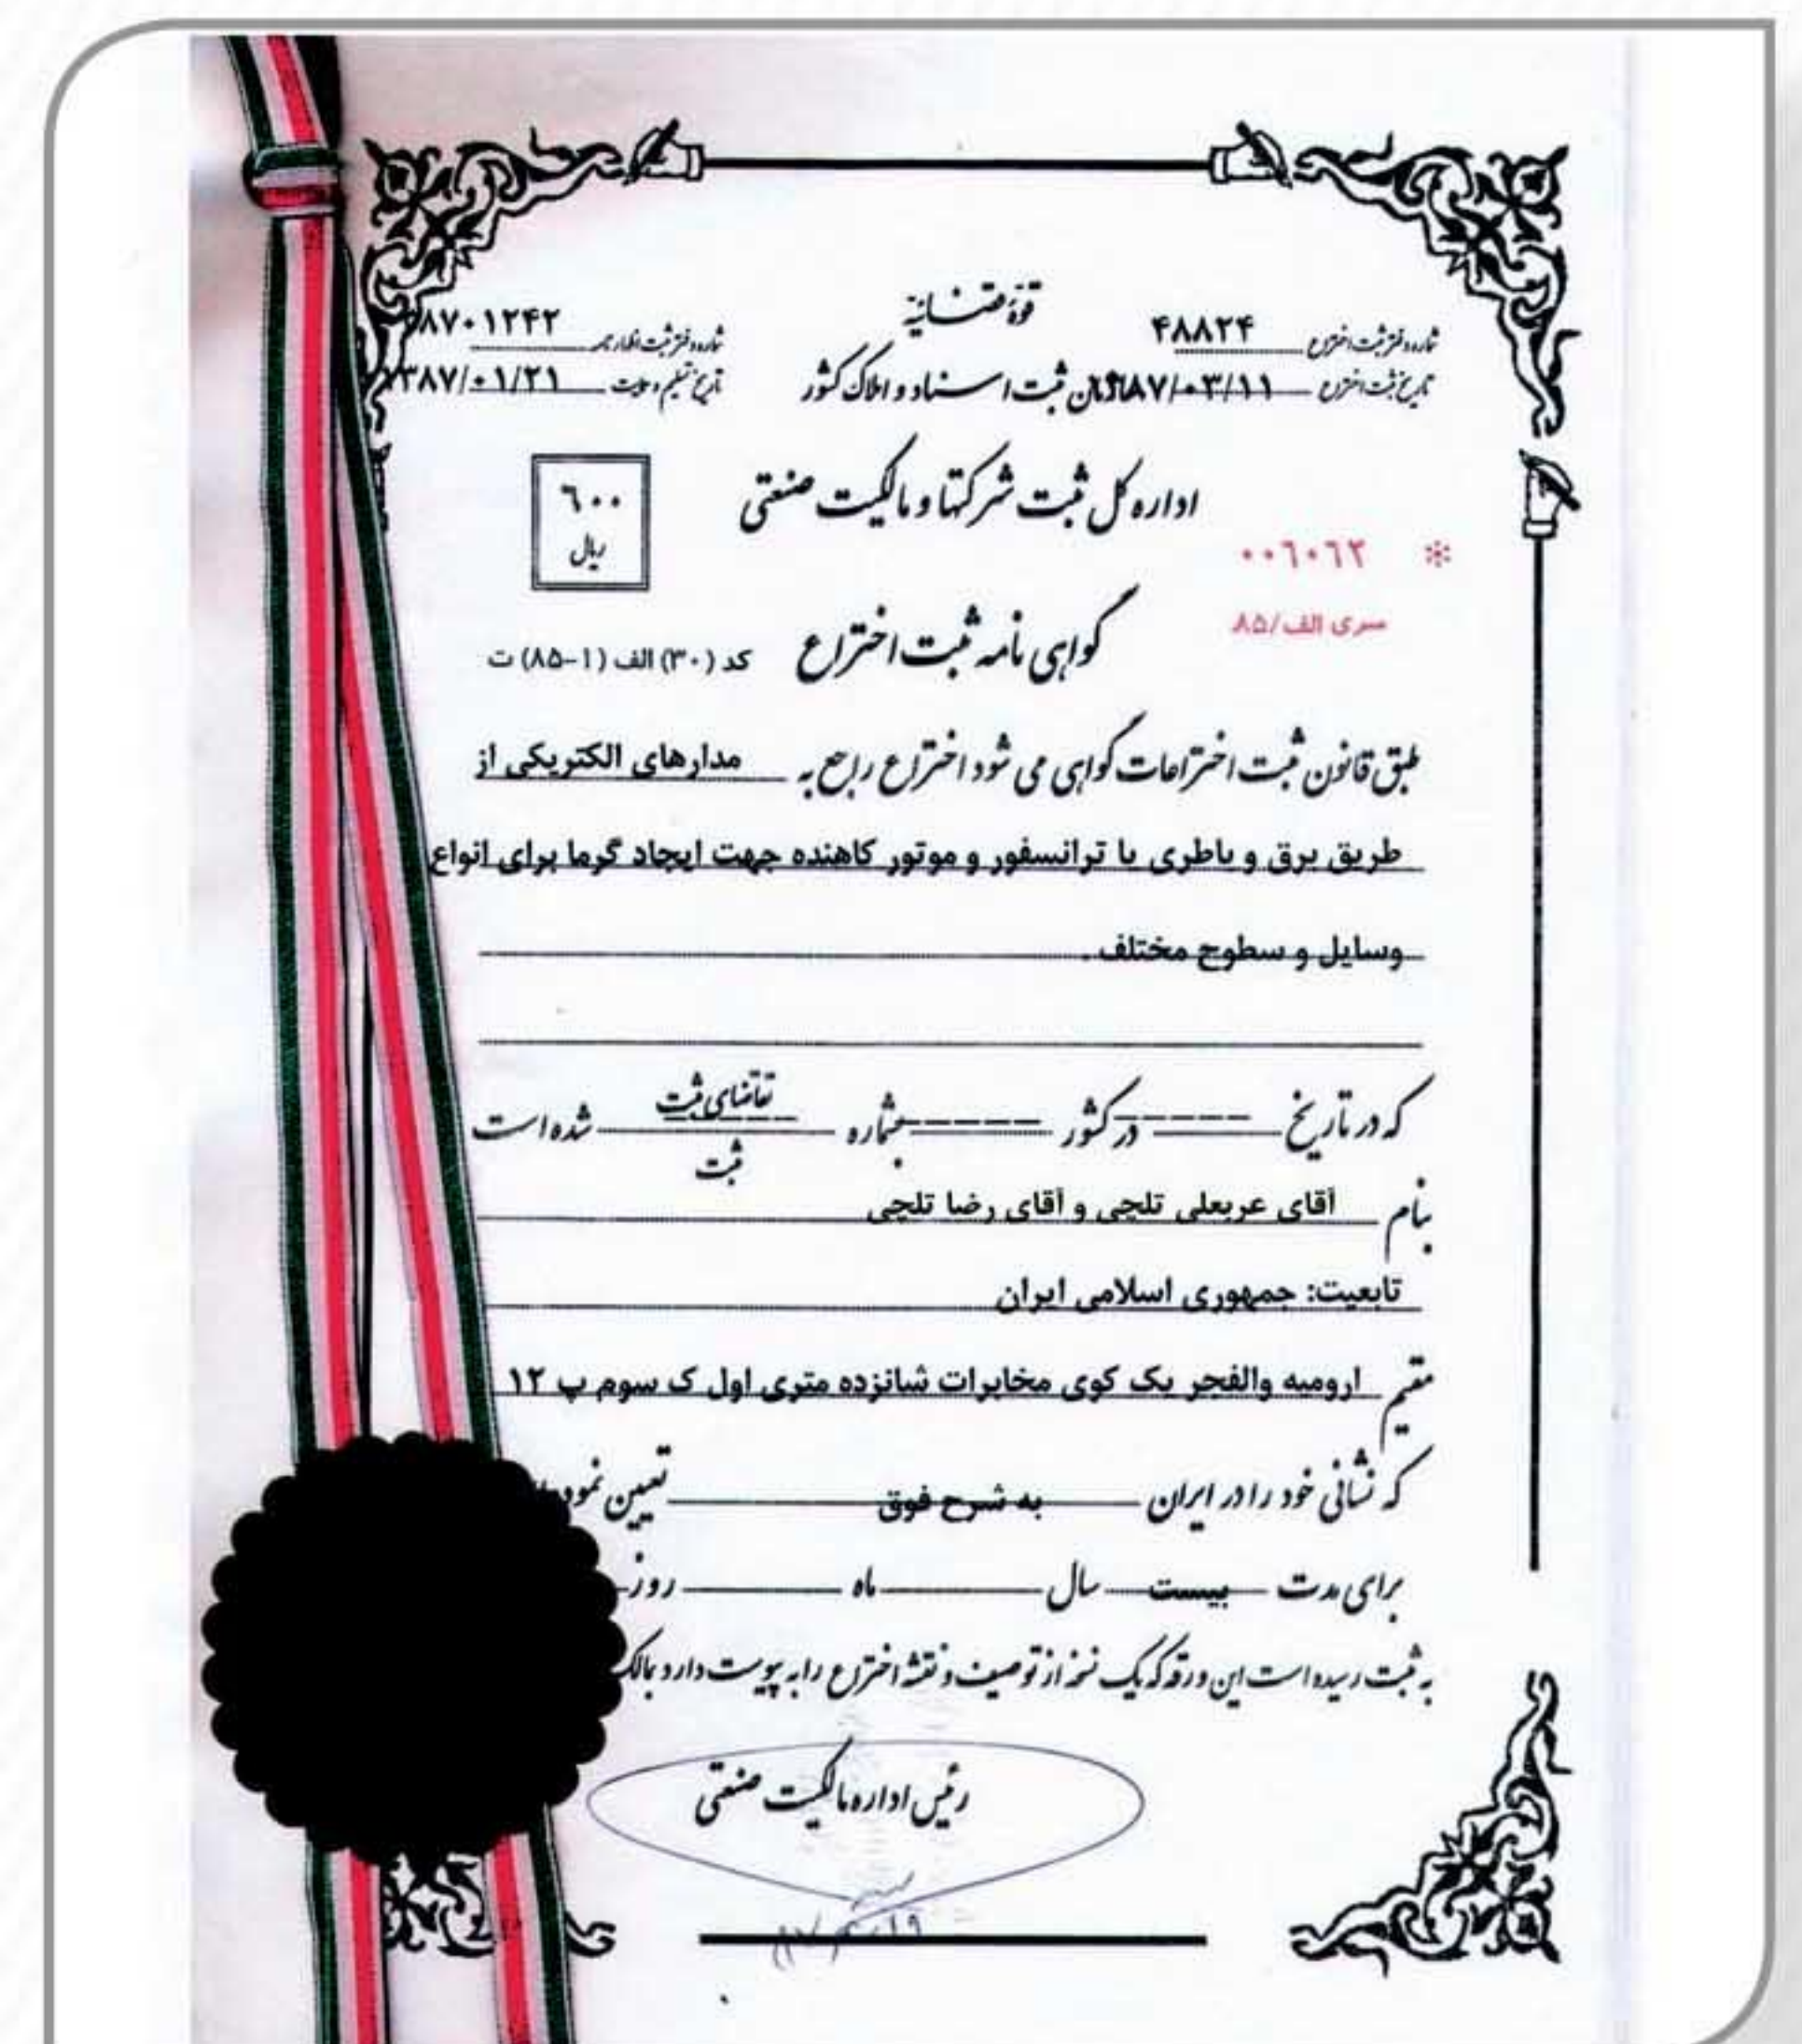 قوه قضائیه
شماره دفتر ثبت اختراع ۴۸۸۲۴
شماره دفتر ثبت اظهارنامه ۸۷۰۱۲۴۲
تاریخ ثبت اختراع ۸۷/۰۳/۱۱
ثبت اسناد و املاک کشور
تاریخ تسلیم و ۱۳۸۷/۰۱/۲۱
اداره کل ثبت شرکتها و مالکیت صنعتی
۶۰۰
ریال
* ۰۰۶۰۶۲
سری الف/۸۵
گواهی نامه ثبت اختراع
کد (۳۰) الف (۱-۸۵) ت
طبق قانون ثبت اختراعات گواهی می شود اختراع راجع به مدارهای الکتریکی از
طریق برق و باطری با ترانسفور و موتور کاهنده جهت ایجاد گرما برای انواع
وسایل و سطوح مختلف .
که در تاریخ ----- در کشور ----- بشماره تقاضای ثبت شده است
ثبت
بنام آقای عربعلی تلچی و آقای رضا تلچی
تابعیت: جمهوری اسلامی ایران
مقیم ارومیه والفجر یک کوی مخابرات شانزده متری اول ک سوم پ ۱۲
که نشانی خود را در ایران به شرح فوق تعیین نموده
برای مدت بیست سال ماه روز
به ثبت رسیده است این ورقه که یک نسخه از توصیف و نقشه اختراع را به پیوست دارد بمالک
رئیس اداره مالکیت صنعتی